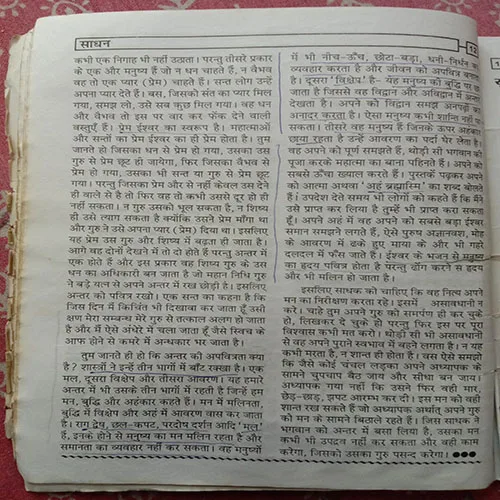 साधन
12
कभी एक निगाह भी नहीं उठाता। परन्तु तीसरे प्रकार
के एक और मनुष्य हैं जो न धन चाहते हैं, न वैभव
वह तो एक प्यार (प्रेम) चाहते हैं। सन्त लोग उन्हें
अपना प्यार देते हैं। बस, जिसको संत का प्यार मिल
गया, समझ लो, उसे सब कुछ मिल गया। वह धन
और वैभव तो इस पर वार कर फेंक देने वाली
वस्तुएँ हैं। प्रेम ईश्वर का स्वरूप है। महात्माओं
और सन्तों का प्रेम ईश्वर का ही प्रेम होता है। तुम
जानते हो जिसका धन से प्रेम हो गया, उसका उस
गुरु से प्रेम छूट हो जायेगा, फिर जिसका वैभव से
प्रेम हो गया, उसका भी सन्त या गुरु से प्रेम छूट
गया। परन्तु जिसका प्रेम और से नहीं केवल उस देने
ही वाले से है तो फिर वह ही कभी उससे दूर हो ही
नहीं सकता। न गुरु उसको भूल सकता है, न शिष्य
ही उसे त्याग सकता है क्योंकि उसने प्रेम माँगा था
और गुरु ने उसे अपना प्यार (प्रेम) दिया था। इसलिए
यह प्रेम उस गुरु और शिष्य में बढ़ता ही जाता है।
आगे वह दोनों देखने में तो दो होते हैं परन्तु अन्तर में
एक होते हैं और इस प्रकार वह शिष्य गुरु के उस
धन का अधिकारी बन जाता है जो महान निधि गुरु
ने बड़े यत्न से अपने अन्तर में रख छोड़ी है। इसलिए
अन्तर को पवित्र रखो। एक सन्त का कहना है कि
जिस दिन में किचिंत भी दिखावा कर जाता हूँ उसी
क्षण मेरा सम्बन्ध मेरे गुरु से तत्काल अलग हो जाता
है और मैं ऐसे अंधेरे में चला जाता हूँ जैसे स्विच के
आफ होने से कमरे में अन्धकार भर जाता है।
तुम जानते ही हो कि अन्तर की अपवित्रता क्या
है? शास्त्रों ने इन्हें तीन भागों में बाँट रक्खा है। एक
मल, दूसरा विक्षेप और तीसरा आवरण। यह हमारे
अन्तर में भी उसके तीन भागों में रहती है जिन्हें हम
मन, बुद्धि और अहंकार कहते हैं। मन में मलिनता,
बुद्धि में विक्षेप और अहं में आवरण वास कर जाता
है। राग द्वेष, छल-कपट, परदोष दर्शन आदि 'मल'
हैं, इनके होने से मनुष्य का मन मलिन रहता है और
समानता का व्यवहार नहीं कर सकता। वह मनुष्यों
में भी नीच-ऊँच, छोटा-बड़ा, धनी-निर्धन का
व्यवहार करता है और जीवन को अपवित्र बनाता
है। दूसरा 'विक्षेप' है- यह मनुष्य की बुद्धि पर छा
जाता है जिससे वह विद्वान और अविद्वान में अन्तर
देखता है। अपने को विद्वान समझ अनपढ़ों का
अनादर करता है। ऐसा मनुष्य कभी शान्त नहीं हो
सकता। तीसरे वह मनुष्य हैं जिनके ऊपर अहंकार
छाया रहता है उन्हें आवरण का पर्दा घेर लेता है।
वह अपने को पूर्ण समझते हैं, थोड़ी सी भगवान की
पूजा करके महात्मा का बाना पहिनते हैं। अपने को
सबसे ऊँचा ख्याल करते हैं। पुस्तकें पढ़कर अपने
को आत्मा अथवा 'अहं ब्रह्मास्मि' का शब्द बोलते
हैं। उपदेश देते समय भी लोगों को कहते हैं कि मैंने
उसे प्राप्त कर लिया है तुम्हें भी प्राप्त करा सकता
हूँ। अपने अहं में वह अपने को सबसे बड़ा ईश्वर
समान समझने लगते हैं, ऐसे पुरुष अज्ञानवश, मोह
के आवरण में ढके हुए माया के और भी गहरे
दलदल में फँस जाते हैं। ईश्वर के भजन से मनुष्य
का हृदय पवित्र होता है परन्तु ढोंग करने से हृदय
और भी मलिन हो जाता है।
इसलिए साधक को चाहिए कि वह नित्य अपने
मन का निरीक्षण करता रहे। इसमें असावधानी न
करे। चाहे तुम अपने गुरु को समर्पण ही कर चुके
हो, लिखकर दे चुके हो परन्तु फिर इस पर पूरा
विश्वास कभी मत करो। थोड़ी सी भी असावधानी
से वह अपने पुराने स्वभाव में बहने लगता है। न यह
कभी मरता है, न शान्त ही होता है। वस ऐसे समझो
कि जैसे कोई चंचल लड़का अपने अध्यापक के
सामने चुपचाप बैठ जाय और सीधा बन जाय।
अध्यापक गया नहीं कि उसने फिर वही मार,
छेड़-छाड़, झपट आरम्भ कर दी। इस मन को वही
शान्त रख सकते हैं जो अध्यापक अर्थात् अपने गुरु
को मन के सामने बिठाले रहते हैं। जिस साधक ने
भगवान को अन्तर में बसा लिया है, उसका मन
कभी भी उपद्रव नहीं कर सकता और वही काम
करेगा, जिसको उसका गुरु पसन्द करेगा। ●●●